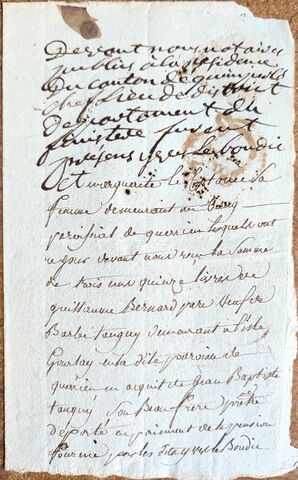 Devant nous notaires
publics à la résidence
du canton de quimperlé
chef lieu de district
Departement du
finistere furent
présens yves le boudic
Et marguerite le
femme demeurant au Bourg
paroissial de querrien lesquels ont
ce jour devant nous reçu la somme
de trois cens quinze livres de
guillaume Bernard pere veuf de
Barbe tanguy demeurant à l'isle
en la dite paroisse de
querrien en acquit de jean Baptiste
tanguy son Beau frere prêtre
déporté en paiement de la pension
fournie par les dits yves le Boudic